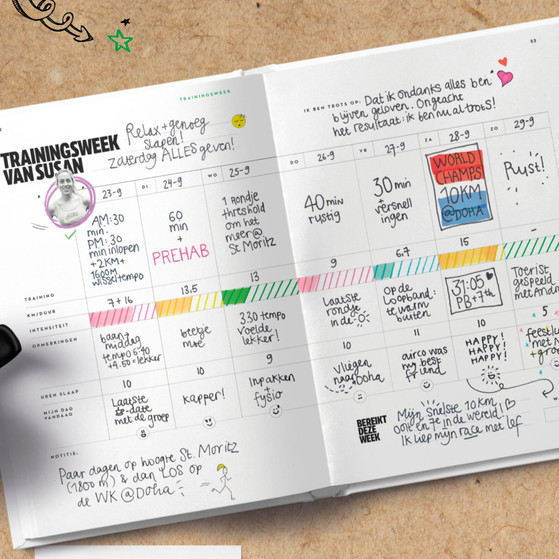 TRAININGSWEEK
TRAININGSWEEK
VAN SUSAN
Relax + genoeg
slapen!
Zaterdag ALLES geven!
23-9
DI
24-9
WO
25-9
AM: 30
min.
PM: 30
min inlopen
+ 2KM +
1600m
wisseltempo
60
min
+
PREHAB
1 Rondje
threshold
om het
meer @
St Moritz
TRAINING
KM/DUUR
7 + 16
13.5
13
INTENSITEIT
OPMERKINGEN
baan +
middag
tempo
lekker
beetje
moe
3.30 tempo
voelde
lekker!
UREN SLAAP
10
10
9
MIJN DAG
VANDAAG
Laatste
date
met de groep
Kapper!
Inpakken
+
fysio
NOTITIE:
Paar dagen op hoogte St. Moritz
(1800 m) & dan LOS op
de WK @ Doha
53
IK BEN TROTS OP:
Dat ik ondanks alles ben
blijven geloven. Ongeacht
het resultaat: ik ben nu al trots!
DO
26-9
VR
27-9
ZA
28-9
ZO
29-9
40 min
rustig
30 min
+
versnell
ingen
WORLD
CHAMPS
10KM
@DOHA
Rust!
9
6.7
15
–
Laatste
rondje
in de
Op de
loopband:
te warm
buiten
31:05
PB + 7th
Toerist
gespeeld
met
10
11
10
5
Vliegen
naar Doha
airco was
my best
friend
HAPPY!
HAPPY!
HAPPY!
Feestje
met
BEREIKT
DEZE
WEEK
Mijn snelste 10km
ooit en 7e in de wereld!
Ik liep mijn race met lef